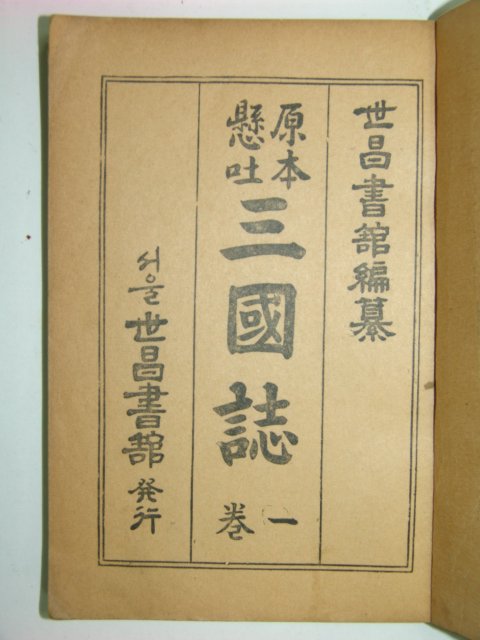 世昌書舘編纂
原本
懸吐
三國誌
一卷
서울 世昌書舘 発行